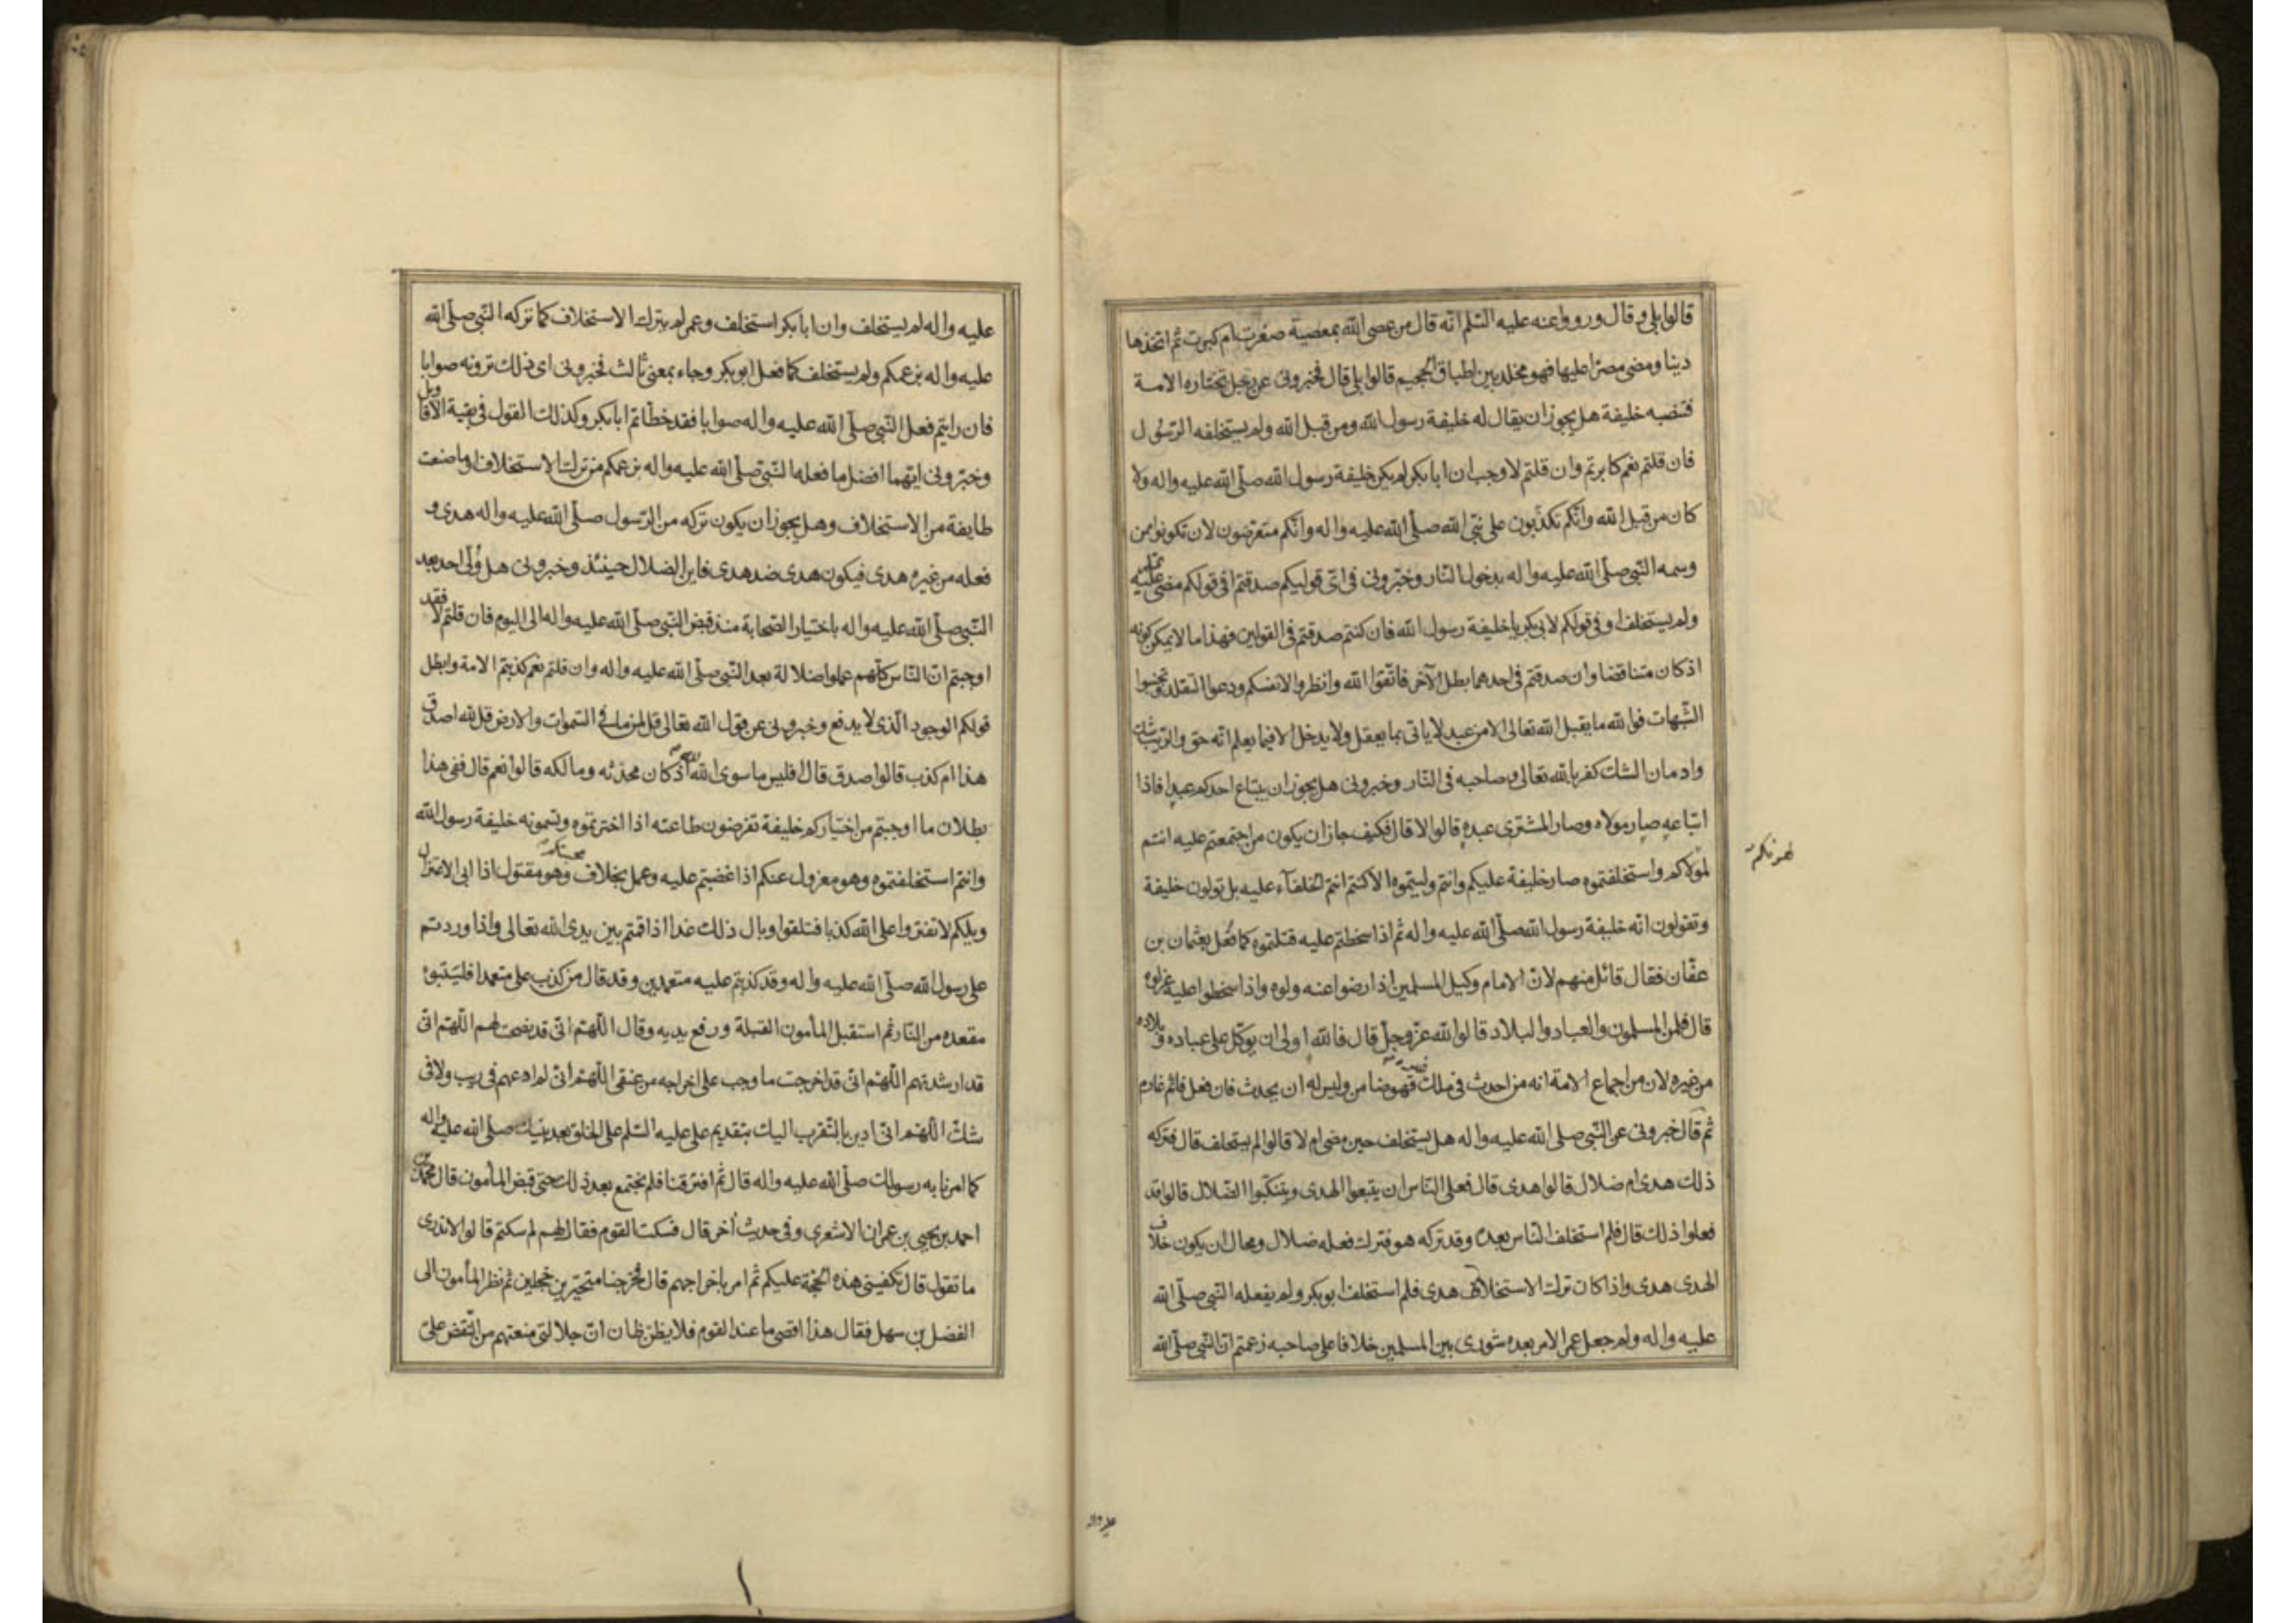 قالوا بلى وقال ورووا عنه عليه السّلم انّه قال من عصى الله بمعصية صغرت ام كبرت ثم اتخذها
دينا ومضى مصرّا عليها فهو مخلد بين اطباق الجحيم قالوا بلى قال فخبرونى عن رجل تختاره الامة
فتنصبه خليفة هل يجوز ان يقال له خليفة رسول الله ومن قبل الله ولم يستخلفه الرّسول
فان قلتم نعم كابرتم وان قلتم لا وجب ان ابا بكر لم يكن خليفة رسول الله صلّى الله عليه واله ولا
كان من قبل الله وانّكم تكذّبون على نبّى الله صلّى الله عليه واله وانّكم متعرّضون لان تكونوا ممن
وسمه النّبى صلّى الله عليه واله بدخول النّار وخبّرونى فى اىّ قوليكم صدقتم افى قولكم مضى عليه
ولم يستخلف او فى قولكم لابى بكر يا خليفة رسول الله فان كنتم صدقتم فى القولين فهذا ما لا يمكن كونه
اذ كان متناقضا وان صدقتم فى احدهما بطل الآخر فاتّقوا الله وانظروا لانفسكم ودعوا التقليد وتجنبوا
الشّبهات فوالله ما يقبل الله تعالى الا من عبد لا ياتى بما يعقل ولا يدخل الا فيما يعلم انّه حق والرّيب شك
وادمان الشك كفر بالله تعالى وصاحبه فى النّار وخبرونى هل يجوز ان يبتاع احدكم عبدا فاذا
ابتاعه صار مولاه وصار المشترى عبده قالوا لا قال فكيف جاز ان يكون من اجتمعتم عليه انتم
لهواكم واستخلفتموه صار خليفة عليكم وانتم وليتموه الا كنتم انتم الخلفآء عليه بل تولون خليفة
وتقولون انّه خليفة رسول الله صلّى الله عليه واله ثم اذا سخطتم عليه قتلتموه كما فُعل بعثمان بن
عفّان فقال قائل منهم لانّ الامام وكيل المسلمين اذا رضوا عنه ولوه واذا سخطوا عليه عزلوه
قال فلمن المسلمون والعباد والبلاد قالوا لله عزّ وجلّ قال فالله اولى ان يوكّل على عباده وبلاده
من غيره لان من اجماع الامة انه من احدث فى ملك غيره فهو ضامن وليس له ان يحدث فان فعل فاثم غارم
ثم قال خبرونى عن النّبى صلى الله عليه واله هل يستخلف حين مضى ام لا قالوا لم يستخلف قال فتركه
ذلك هدى ام ضلال قالوا هدى قال فعلى النّاس ان يتبعوا الهدى ويتنكّبوا الضّلال قالوا قد
فعلوا ذلك قال فلم استخلف النّاس بعده وقد تركه هو فترك فعله ضلال ومحال ان يكون خلاف
الهدى هدى واذا كان ترك الاستخلاف هدى فلم استخلف ابو بكر ولم يفعله النّبى صلّى الله
عليه واله ولم جعل عمر الامر بعده شورى بين المسلمين خلافا على صاحبه زعمتم انّ النّبى صلّى الله
عليه واله
عليه واله لم يستخلف وان ابا بكر استخلف وعمر لم يترك الاستخلاف كما تركه النّبى صلّى الله
عليه واله بزعمكم ولم يستخلف كما فعل ابو بكر وجاء بمعنى ثالث فخبرونى اى ذلك ترونه صوابا
فان رايتم فعل النّبى صلّى الله عليه واله صوابا فقد خطّأتم ابا بكر وكذلك القول فى بقية الاقاويل
وخبّرونى ايّهما افضل ما فعله النّبىّ صلّى الله عليه واله بزعمكم من ترك الاستخلاف او ما صنعت
طايفة من الاستخلاف وهل يجوز ان يكون تركه من الرّسول صلّى الله عليه واله هدى و
فعله من غيره هدى فيكون هدى ضد هدى فاين الضلال حينئذ وخبرونى هل وُلّى احد بعد
النّبى صلّى الله عليه واله باختيار الصّحابة منذ قبض النّبى صلّى الله عليه واله الى اليوم فان قلتم لا فقد
اوجبتم انّ النّاس كلّهم عملوا ضلالة بعد النّبى صلّى الله عليه واله وان قلتم نعم كذبتم الامة وابطل
قولكم الوجود الّذى لا يدفع وخبرونى عن قول الله تعالى قل لمن ما فى السّموات والارض قل لله اصدق
هذا ام كذب قالوا صدق قال افليس ما سوى الله لله اذ كان محدثه ومالكه قالوا نعم قال ففى هذا
بطلان ما اوجبتم من اختياركم خليفة تفرضون طاعته اذا اخترتموه وتسمونه خليفة رسول الله
وانتم استخلفتموه وهو معزول عنكم اذا غضبتم عليه وعمل بخلاف محبتكم وهو مقتول اذا ابى الاعتزال
ويلكم لا تفتروا على الله كذبا فتلقوا وبال ذلك غدا اذا قمتم بين يدى الله تعالى واذا وردتم
على رسول الله صلّى الله عليه واله وقد كذبتم عليه متعمدين وقد قال من كذب علىّ متعمدا فليتبوء
مقعده من النّار ثم استقبل المأمون القبلة ورفع يديه وقال اللّهمّ انّى قد نصحت لهم اللّهمّ انّى
قد ارشدتهم اللّهمّ انّى قد اخرجت ما وجب علىّ اخراجه من عنقى اللّهمّ انّى لم ادعهم فى ريب ولا فى
شكّ اللّهمّ انّى ادين بالتّقرب اليك بتقديم على عليه السّلم على الخلق بعد نبيك صلّى الله عليه واله
كما امرنا به رسولك صلّى الله عليه واله قال ثم افترقنا فلم نجتمع بعد ذلك حتى قبض المأمون قال محمد بن
احمد بن يحيى بن عمران الاشعرى وفى حديث اخر قال فسكت القوم فقال لهم لم سكتم قالوا لا ندرى
ما تقول قال تكفينى هذه الحجّة عليكم ثم امر باخراجهم قال فخرجنا متحيّرين خجلين ثم نظر المأمون الى
الفضل بن سهل فقال هذا اقصى ما عند القوم فلا يظنّ ظان انّ جلالتى منعتهم من النّقض علىّ